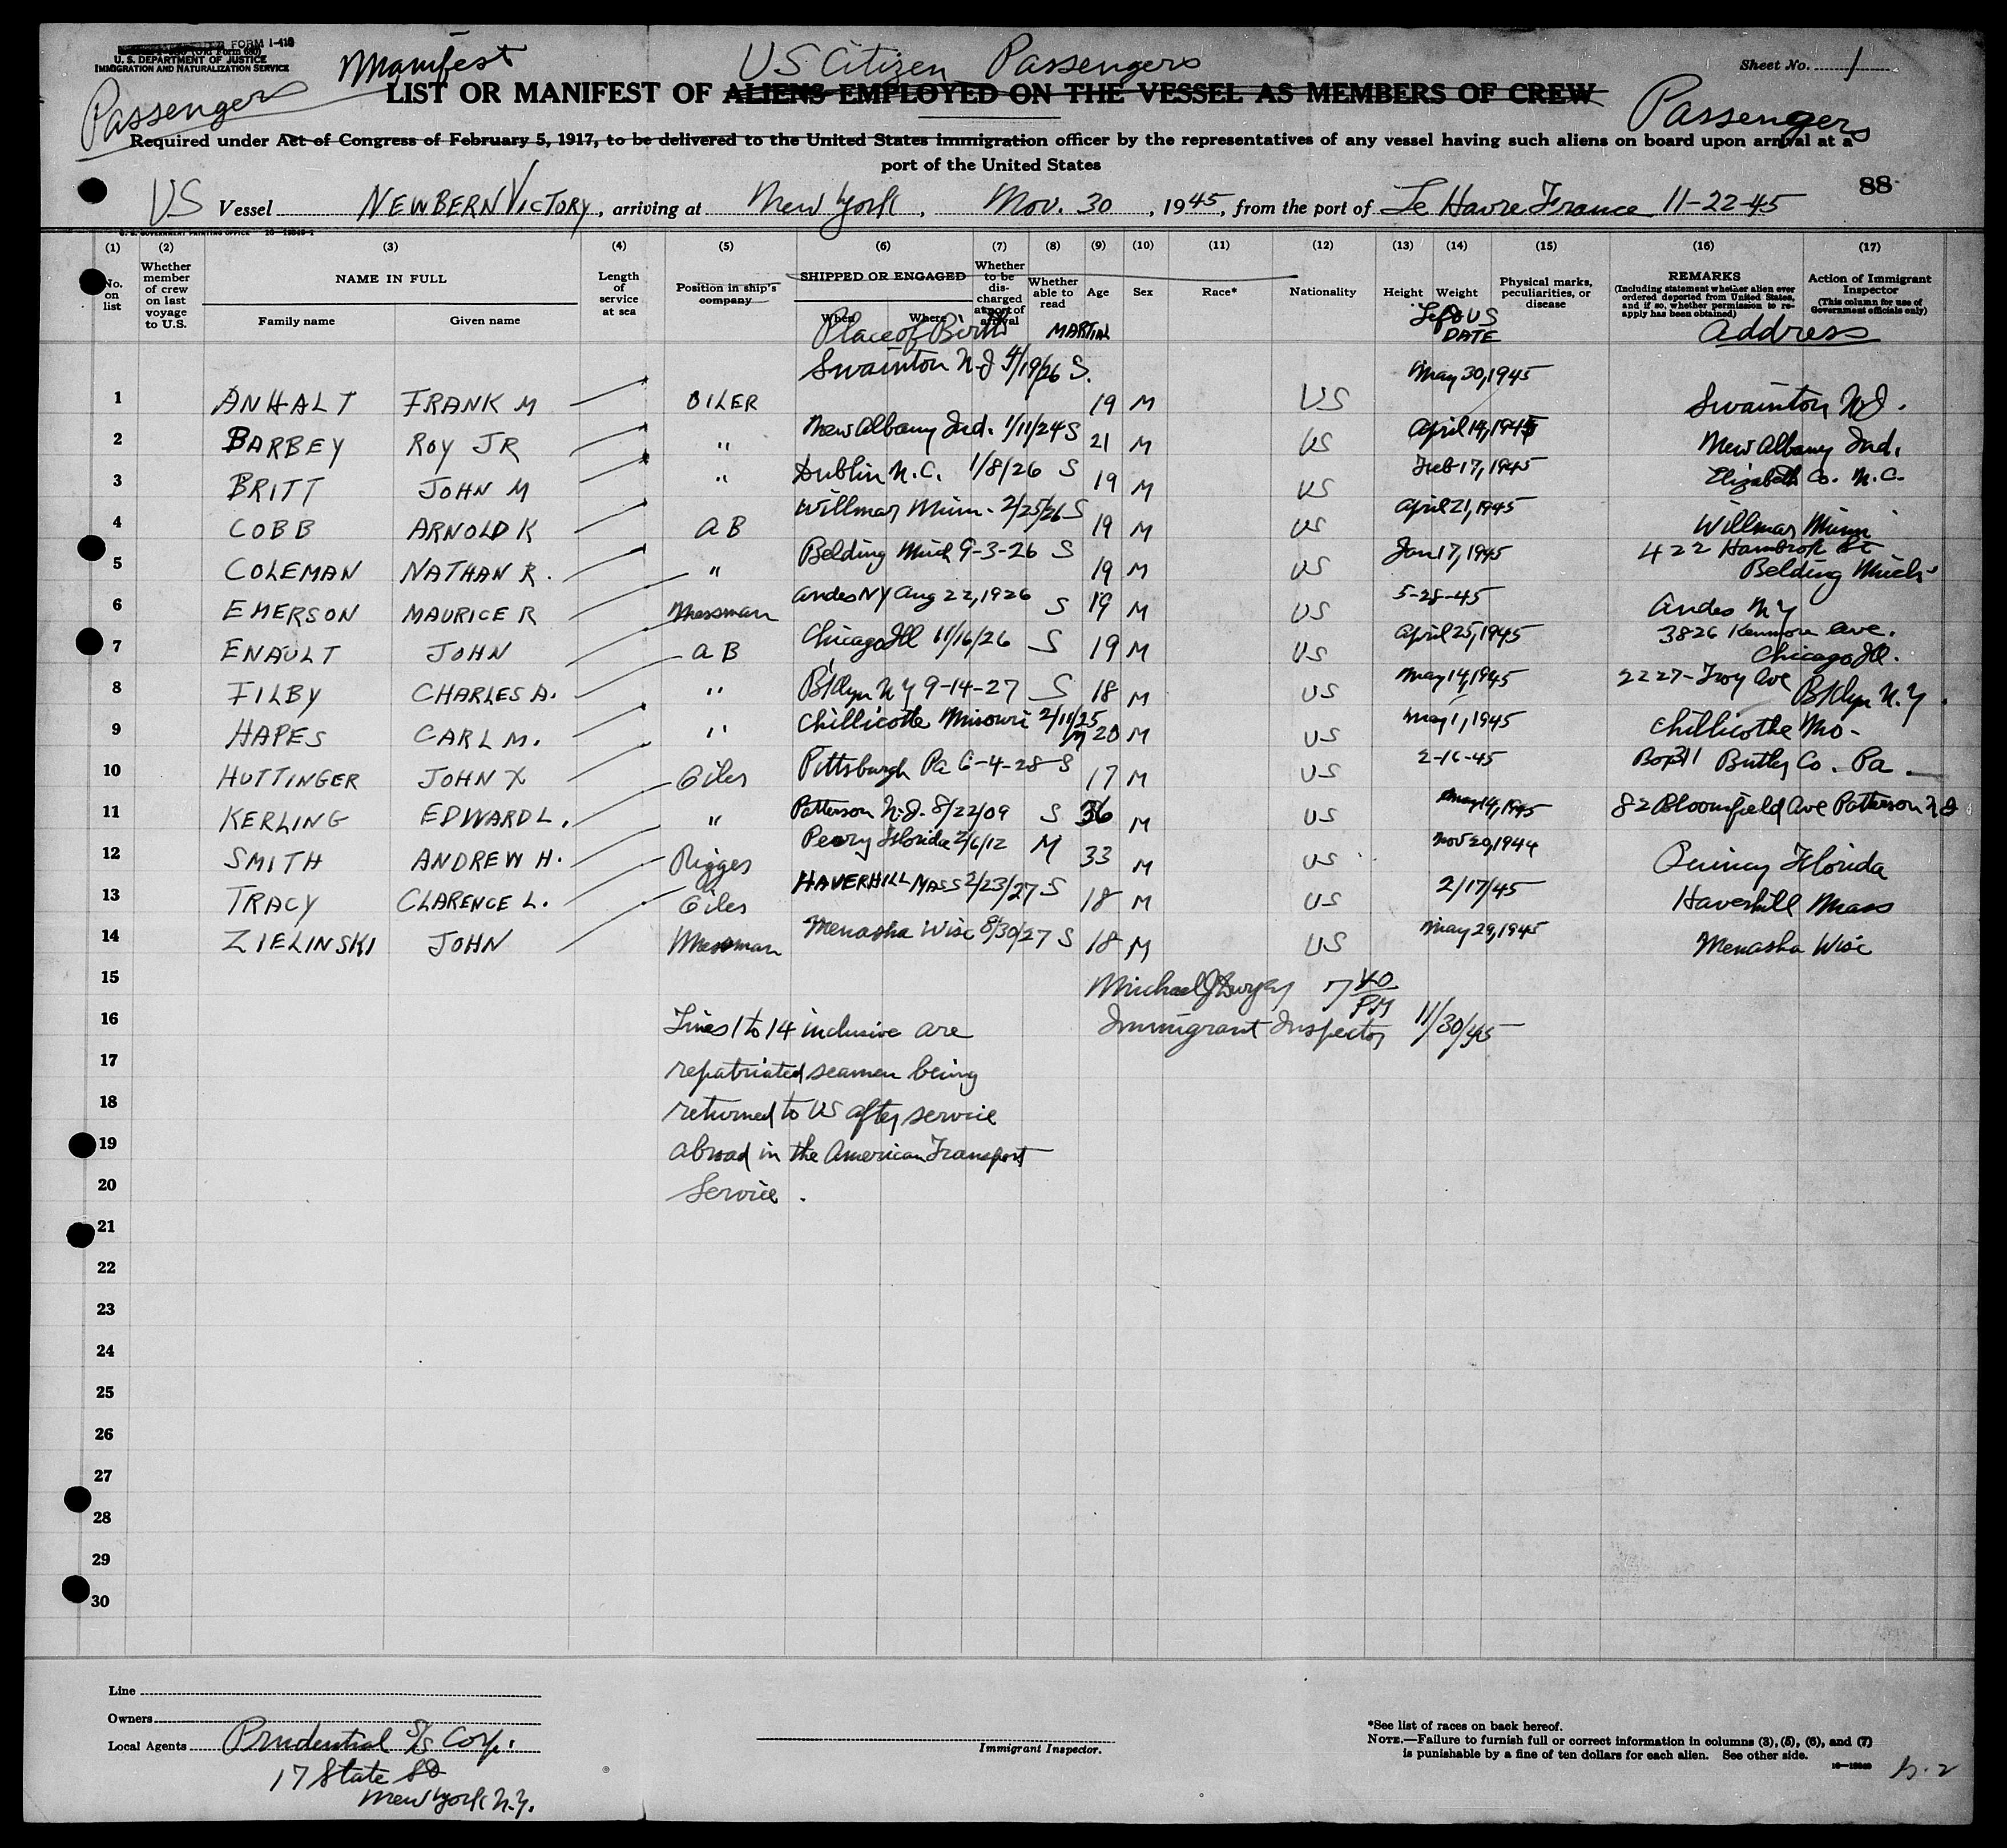 FORM I-418
(Old Form 680)
U. S. DEPARTMENT OF JUSTICE
IMMIGRATION AND NATURALIZATION SERVICE
Passengers
Manifest
US Citizen Passengers
Sheet No. 1
LIST OR MANIFEST OF ALIENS EMPLOYED ON THE VESSEL AS MEMBERS OF CREW
Passengers
Required under Act of Congress of February 5, 1917, to be delivered to the United States immigration officer by the representatives of any vessel having such aliens on board upon arrival at a
port of the United States
88
US Vessel NEWBERN VICTORY, arriving at New York, Nov. 30, 1945, from the port of Le Havre France 11-22-45
(1) (2) (3) (4) (5) (6) (7) (8) (9) (10) (11) (12) (13) (14) (15) (16) (17)
No. on list
Whether member of crew on last voyage to U.S.
NAME IN FULL
Family name Given name
Length of service at sea
Position in ship's company
SHIPPED OR ENGAGED
When Where
Place of Birth
Whether to be discharged at port of arrival
Whether able to read
Age Sex Race* Nationality Height Weight
Left US
DATE
Physical marks, peculiarities, or disease
REMARKS
(Including statement whether alien ever ordered deported from United States, and if so, whether permission to reapply has been obtained)
Address
Action of Immigrant Inspector
(This column for use of Government officials only)
1 ANHALT FRANK M OILER Swainton N.J 4/19/26 S. 19 M US May 30, 1945 Swainton N.J.
2 BARBEY ROY JR " New Albany Ind. 1/11/24 S 21 M US April 14, 1945 New Albany Ind.
3 BRITT JOHN M " Dublin N.C. 1/8/26 S 19 M US Feb 17, 1945 Elizabeth Co. N.C.
4 COBB ARNOLD K AB Willmar Minn. 2/25/26 S 19 M US April 21, 1945 Willmar Minn
5 COLEMAN NATHAN R. " Belding Mich 9-3-26 S 19 M US Jan 17, 1945 422 St Belding Mich
6 EMERSON MAURICE R Messman Andes NY Aug 22, 1926 S 19 M US 5-28-45 Andes N.Y
7 ENAULT JOHN AB Chicago Ill 11/16/26 S 19 M US April 25, 1945 3826 Kenmore Ave. Chicago Ill.
8 FILBY CHARLES A. " Bklyn N Y 9-14-27 S 18 M US May 14, 1945 2227-Troy Ave Bklyn N.Y.
9 HAPES CARL M. " Chillicothe Missouri 2/11/25 M 20 M US May 1, 1945 Chillicothe Mo-
10 HUTTINGER JOHN X Oiler Pittsburgh Pa 6-4-28 S 17 M US 2-16-45 Box 311 Butler Co. Pa.
11 KERLING EDWARD L. " Patterson N.J. 8/22/09 S 36 M US May 14, 1945 82 Bloomfield Ave Patterson N J
12 SMITH ANDREW H. Rigger Perry Florida 2/6/12 M 33 M US Nov 20, 1944 Quincy Florida
13 TRACY CLARENCE L. Oiler HAVERHILL MASS 2/23/27 S 18 M US 2/17/45 Haverhill Mass
14 ZIELINSKI JOHN Messman Menasha Wisc 8/30/27 S 18 M US May 29, 1945 Menasha Wisc
15 Michael J Dwyer 7 40 PM
16 Lines 1 to 14 inclusive are Immigrant Inspector 11/30/45
17 repatriated seamen being
18 returned to US after service
19 abroad in the American Transport
20 Service.
21
22
23
24
25
26
27
28
29
30
Line
Owners
Local Agents Prudential S/S Corp.
17 State St
New York N.Y.
Immigrant Inspector.
*See list of races on back hereof.
NOTE.—Failure to furnish full or correct information in columns (3), (5), (6), and (7)
is punishable by a fine of ten dollars for each alien. See other side.